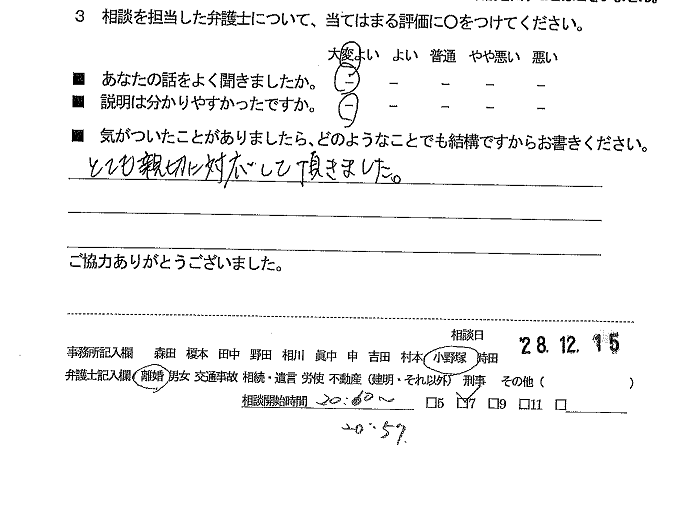 3 相談を担当した弁護士について、当てはまる評価に〇をつけてください。
大変よい よい 普通 やや悪い 悪い
■ あなたの話をよく聞きましたか。 － － － － －
■ 説明は分かりやすかったですか。 － － － － －
■ 気がついたことがありましたら、どのようなことでも結構ですからお書きください。
とても親切に対応して頂きました。
ご協力ありがとうございました。
相談日 '28.12.15
事務所記入欄 森田 榎本 田中 野田 相川 眞中 申 吉田 村本 小野塚 時田
弁護士記入欄 離婚 男女 交通事故 相続・遺言 労使 不動産（建明・それ以外） 刑事 その他（ ）
相談開始時間 20:00～ □5 □7 □9 □11 □
20:57